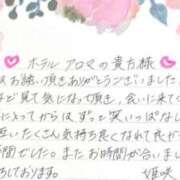 ホテル アロマの貴方様
お誘い頂きありがとうございました
見て気になって頂き、会いに来て
になってからはずっと笑いっぱなし
互いにたくさん気持ち良くなれて良かっ
間でした。またお時間が合いまし
ちしております
姫咲